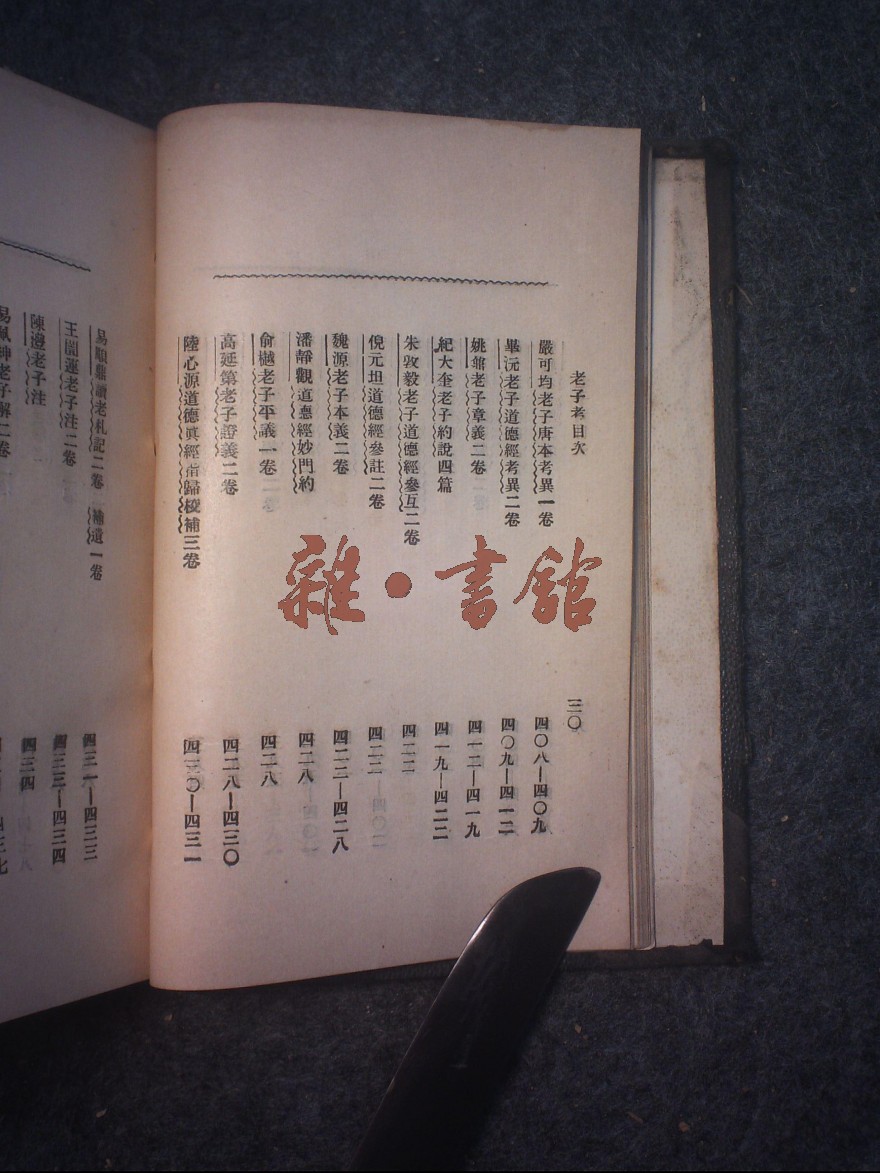 老子考目次 三〇
嚴可均老子唐本考異一卷 四〇八—四〇九
畢沅老子道德經考異二卷 四〇九—四一二
姚鼐老子章義二卷 四一二—四一九
紀大奎老子約說四篇 四一九—四二二
朱敦毅老子道德經參互二卷 四二二
倪元坦道德經參註二卷 四二二
魏源老子本義二卷 四二二—四二八
潘靜觀道悳經妙門約 四二八
俞樾老子平議一卷 四二八
高延第老子證義二卷 四二八—四三〇
陸心源道德眞經指歸校補三卷 四三〇—四三一
易順鼎讀老札記二卷 補遺一卷 四三一—四三三
王闓運老子注二卷 四三三—四三四
陳澧老子注 四三四
老子解二卷
雜•書館